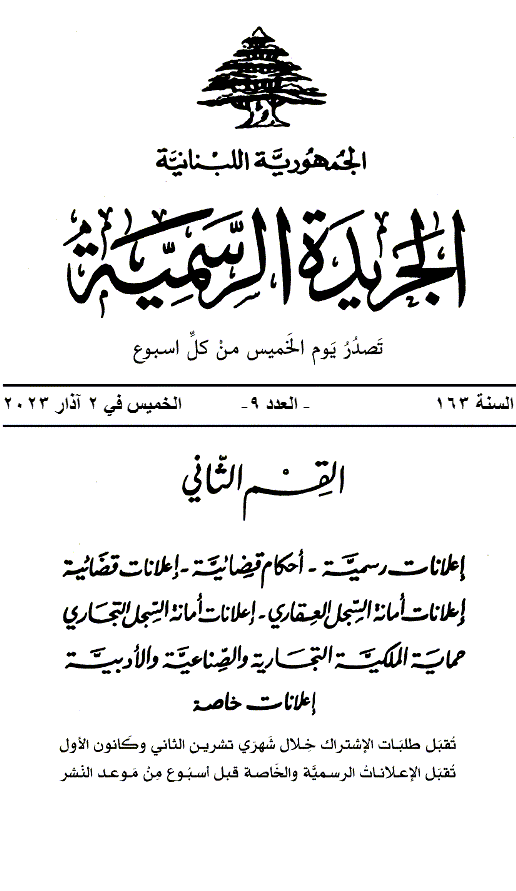 الجُمهُوريَّة اللبْنانيَّة
الجَريدَة الرَّسميَّة
تَصدُرُ يَوم الخَميس منْ كلِّ اسبوع
السنة ١٦٣ - العدد ٩- الخميس في ٢ آذار ٢٠٢٣
القِسْم الثَّاني
إعلانات رسميَّة - أحكام قضائيَّة - إعلانات قضائية
إعلانات أمانة السِّجل العقاري - إعلانات أمانة السِّجل التجاري
حماية الملكيَّة التجارية والصِّناعيَّة والأدبيَّة
إعلانات خاصة
تُقبَل طلبَات الإشتراك خِلال شَهرَي تشرين الثاني وكَانون الأول
تُقبَل الإعلاناتُ الرسميَّة والخَاصة قبل أسبُوع مِنْ مَوعد النَشر